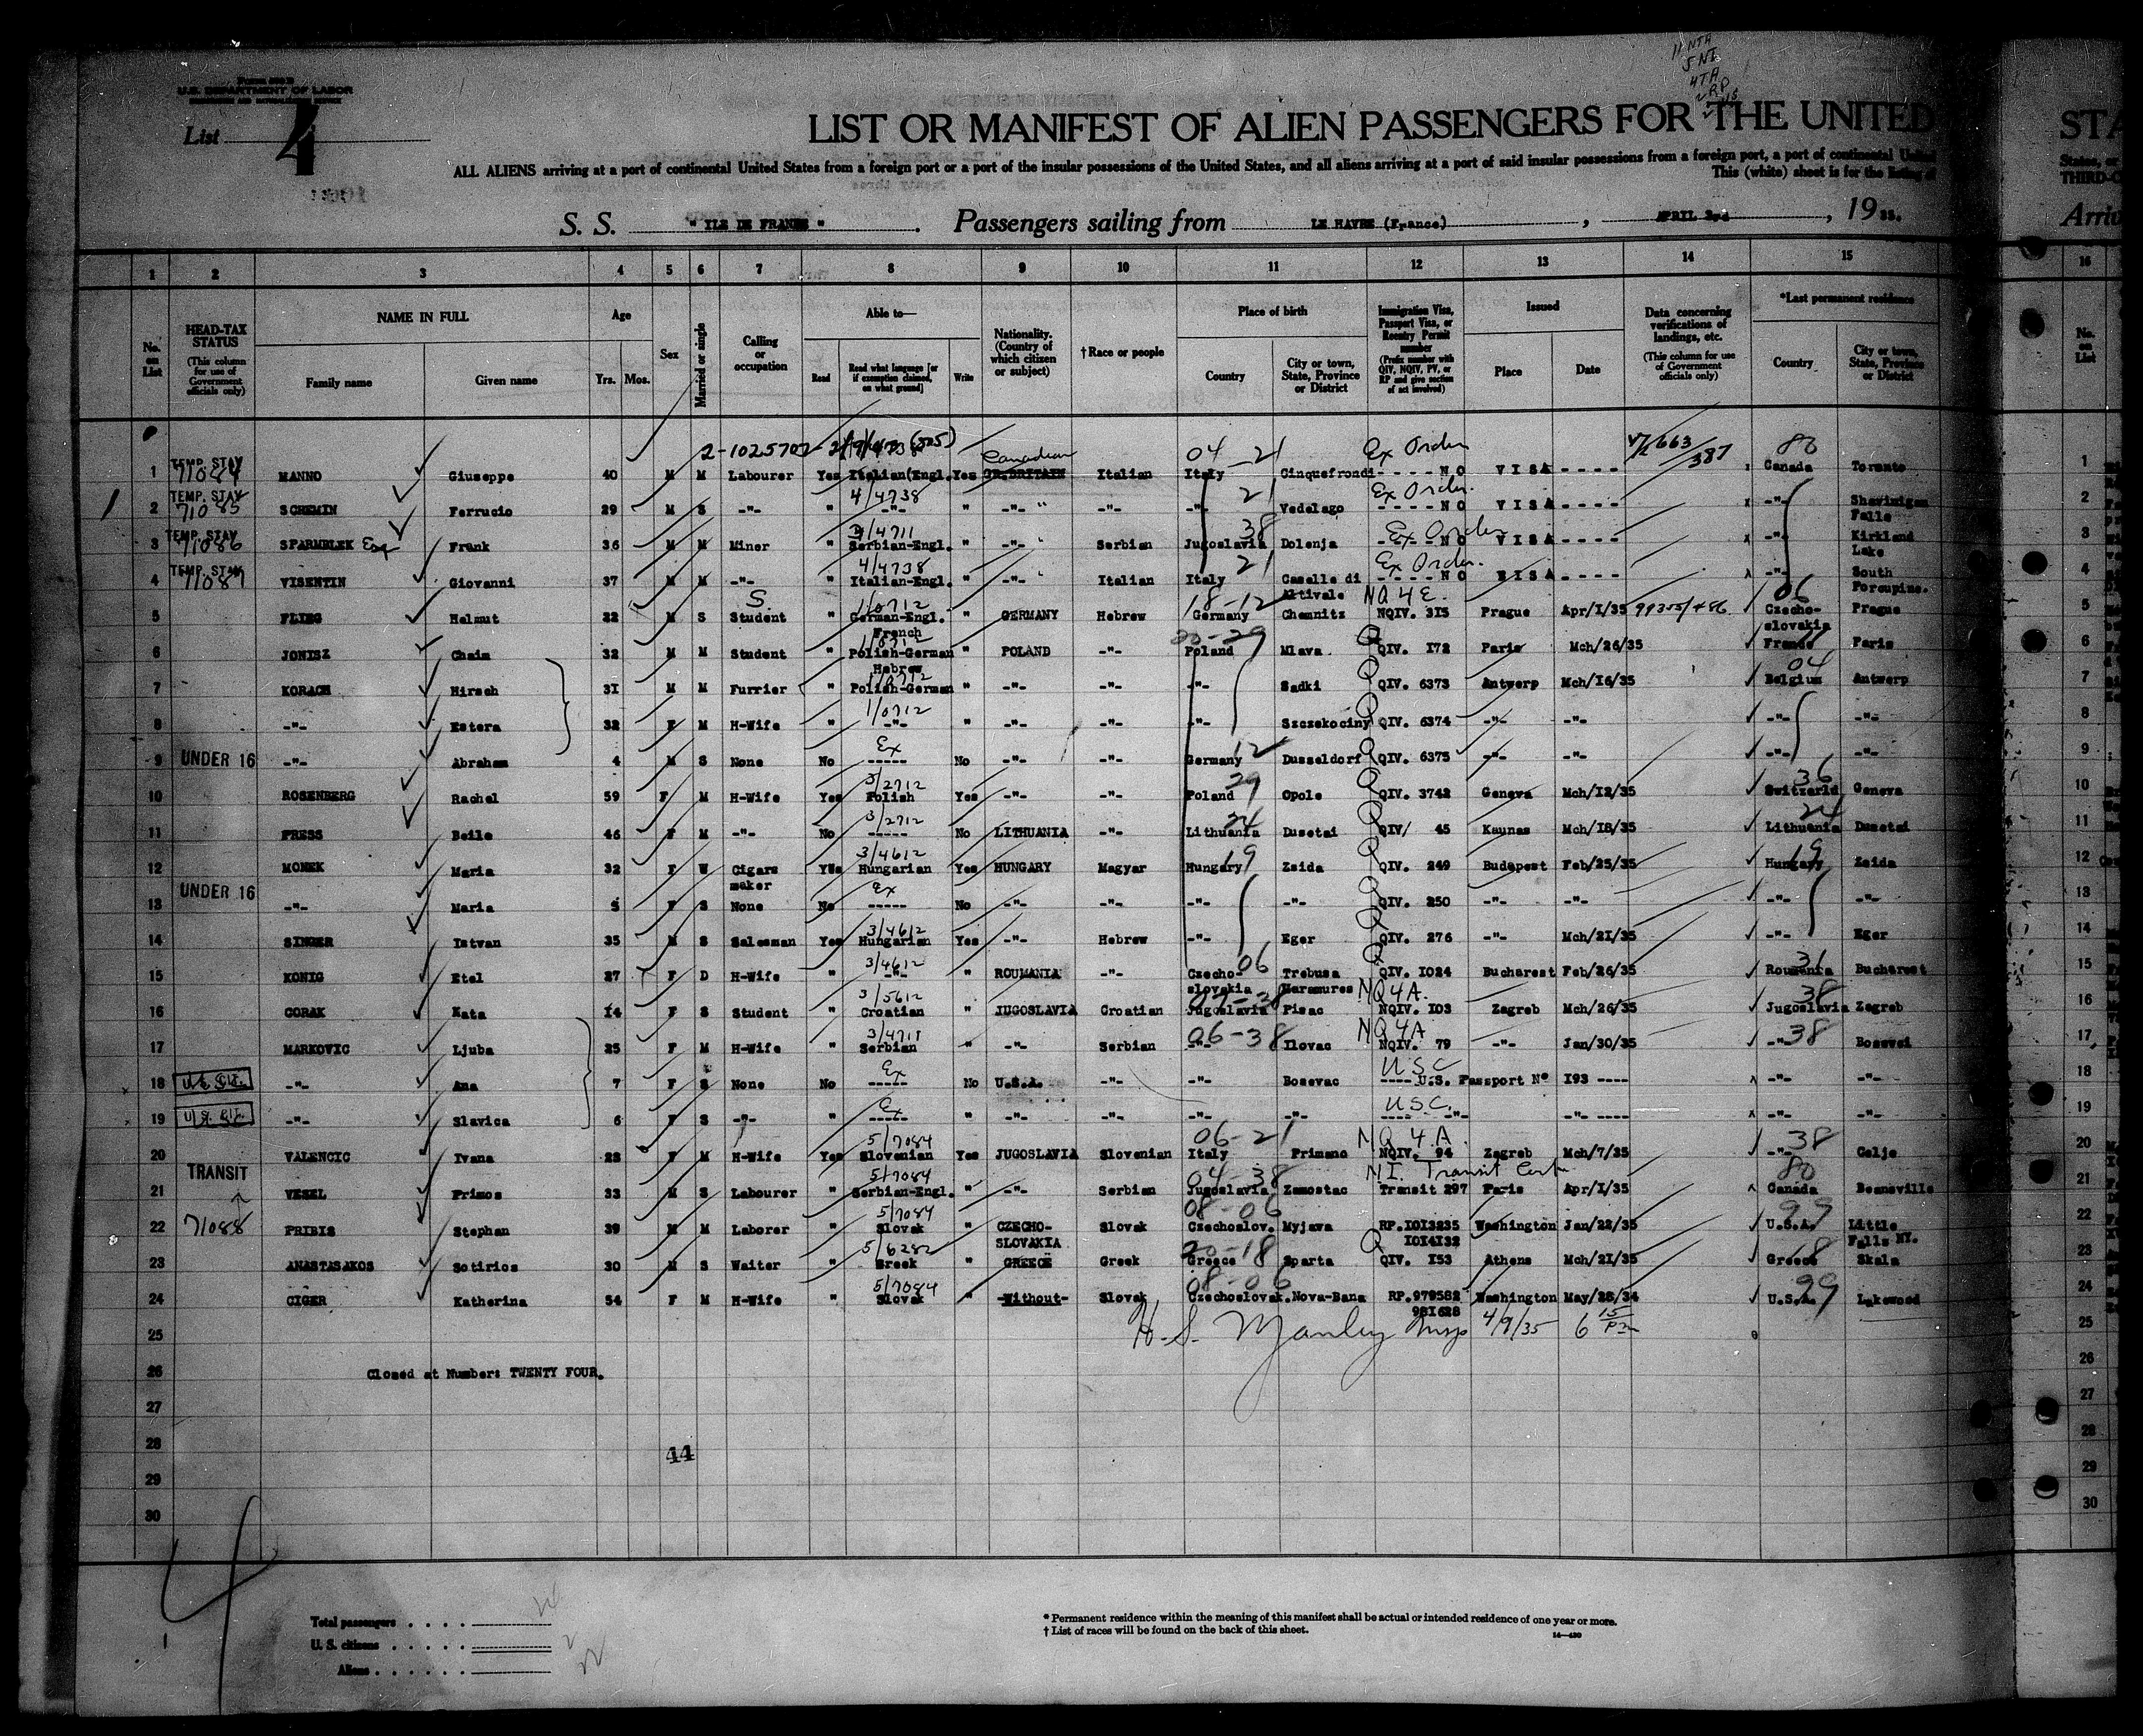 11 NTA
5 NI
4 TA
2 RP
U.S. DEPARTMENT OF LABOR
List 4
LIST OR MANIFEST OF ALIEN PASSENGERS FOR THE UNITED
STA
ALL ALIENS arriving at a port of continental United States from a foreign port or a port of the insular possessions of the United States, and all aliens arriving at a port of said insular possessions from a foreign port, a port of continental United
This (white) sheet is for the listing of
States, or
THIRD-C
S. S. " ILE DE FRANCE " . Passengers sailing from LE HAVRE (France) , APRIL 3rd , 19 35.
Arriv
1 2 3 4 5 6 7 8 9 10 11 12 13 14 15 16
No. on List
HEAD-TAX STATUS (This column for use of Government officials only)
NAME IN FULL Family name Given name
Age Yrs. Mos.
Sex
Married or single
Calling or occupation
Able to— Read Read what language [or if exemption claimed, on what ground] Write
Nationality. (Country of which citizen or subject)
†Race or people
Place of birth Country City or town, State, Province or District
Immigration Visa, Passport Visa, or Reentry Permit number (Prefix number with QIV, NQIV, PV, or RP and give section of act involved)
Issued Place Date
Data concerning verifications of landings, etc. (This column for use of Government officials only)
*Last permanent residence Country City or town, State, Province or District
No. on List
2-1025702 Canadian 04-21 Ex Order 80
1 TEMP. STAY 71084 MANNO Giuseppe 40 M M Labourer Yes Italian(Engl. Yes GR.BRITAIN Italian Italy Cinquefrondi - - - - NO VISA - - - - x Canada Toronto 1
4/4738 21 Ex Order.
2 TEMP. STAY 71085 SCREMIN Ferrucio 29 M S -"- " -"- " -"- " -"- -"- Vedelago - - - - NO VISA - - - - x -"- Shavinigan Falls 2
4711 38 Ex Order
3 TEMP. STAY 71086 SPARMBLEK Frank 36 M M Miner " Serbian-Engl. " -"- Serbian Jugoslavia Dolenja NO VISA - - - - x -"- Kirkland Lake 3
4/4738 21 Ex Order.
4 TEMP. STAY 71087 VISENTIN Giovanni 37 M M -"- " Italian-Engl. " -"- Italian Italy Caselle di Altivale - - - - NO VISA - - - - -"- South Porcupine. 4
S. 1/0712 18-12 NQ4E. 06
5 FLIEG Helmut 22 M S Student " German-Engl. French " GERMANY Hebrew Germany Chemnitz NQIV. 315 Prague Apr/1/35 Czecho-slovakia Prague 5
1/0712 20-29
6 JONISZ Chaim 32 M M Student " Polish-German Hebrew " POLAND -"- Poland Mlava QIV. 172 Paris Mch/26/35 France Paris 6
1/0712 04
7 KORACH Hirsch 31 M M Furrier " Polish-German " -"- -"- -"- Sadki QIV. 6373 Antwerp Mch/16/35 Belgium Antwerp 7
1/0712
8 -"- Estera 32 F M H-Wife " -"- " -"- -"- -"- Szczekociny QIV. 6374 -"- -"- -"- -"- 8
Ex 12
9 UNDER 16 -"- Abraham 4 M S None No ----- No -"- -"- Germany Dusseldorf QIV. 6375 -"- -"- -"- -"- 9
3/2712 29 36
10 ROSENBERG Rachel 59 F M H-Wife Yes Polish Yes -"- -"- Poland Opole QIV. 3742 Geneva Mch/12/35 Switzerld Geneva 10
3/2712 24 24
11 PRESS Beile 46 F M -"- No ----- No LITHUANIA -"- Lithuania Dusetai QIV/ 45 Kaunas Mch/18/35 Lithuania Dusetai 11
3/4612 19 19
12 MONEK Maria 32 F W Cigars maker Yes Hungarian Yes HUNGARY Magyar Hungary Zsida QIV. 249 Budapest Feb/25/35 Hungary Zsida 12
Ex
13 UNDER 16 -"- Maria 5 F S None No ----- No -"- -"- -"- -"- QIV. 250 -"- -"- -"- -"- 13
3/4612
14 SINGER Istvan 35 M S Salesman Yes Hungarian Yes -"- Hebrew -"- Eger QIV. 276 -"- Mch/21/35 -"- Eger 14
3/4612 06 31
15 KONIG Etel 27 F D H-Wife " -"- " ROUMANIA -"- Czecho-slovakia Trebusa Maramures QIV. 1024 Bucharest Feb/26/35 Roumania Bucharest 15
3/5612 NQ4A. 38
16 CORAK Kata 14 F S Student " Croatian " JUGOSLAVIA Croatian Jugoslavia Pisac NQIV. 103 Zagreb Mch/26/35 Jugoslavia Zagreb 16
3/4711 06-38 NQ4A 38
17 MARKOVIC Ljuba 25 F M H-Wife " Serbian " -"- Serbian -"- Ilovac NQIV. 79 -"- Jan/30/35 -"- Bosevci 17
Ex USC
18 U.S. CIT. -"- Ana 7 F S None No ----- No U.S.A. -"- -"- Bosevac ---- U.S. Passport N° 193 ---- -"- -"- 18
Ex USC.
19 U.S. CIT. -"- Slavica 6 F S -"- " ----- " -"- -"- -"- -"- ---- -"- -"- ---- -"- -"- 19
5/7084 06-21 NQ4A. 38
20 VALENCIC Ivana 28 F M H-Wife Yes Slovenian Yes JUGOSLAVIA Slovenian Italy Primano NQIV. 94 Zagreb Mch/7/35 -"- Celje 20
5/7084 04-38 N.I. Transit Cert 80
21 TRANSIT VESEL Primos 33 M S Labourer " Serbian-Engl. " -"- Serbian Jugoslavia Zamostac Transit 297 Paris Apr/1/35 Canada Beamsville 21
5/7084 08-06 99
22 71088 PRIBIS Stephan 39 M M Laborer " Slovak " CZECHO-SLOVAKIA Slovak Czechoslov. Myjava RP.1013235 1014132 Washington Jan/22/35 U.S.A. Little Falls NY. 22
5/6282 20-18 18
23 ANASTASAKOS Sotirios 30 M S Waiter " Greek " GREECE Greek Greece Sparta QIV. 153 Athens Mch/21/35 Greece Skala 23
5/7084 08-06 99
24 CIGER Katherina 54 F M H-Wife " Slovak " -Without- Slovak Czechoslovak. Nova-Bana RP.979582 981628 Washington May/28/34 U.S.A. Lakewood 24
25 H. S. Manley Insp 4/9/35 6 15 Pm 25
26 Closed at Number: TWENTY FOUR. 26
27 27
28 44 28
29 29
30 30
4
Total passengers . . . .
U. S. citizens . . . . .
Aliens . . . . . .
* Permanent residence within the meaning of this manifest shall be actual or intended residence of one year or more.
† List of races will be found on the back of this sheet.
14—430